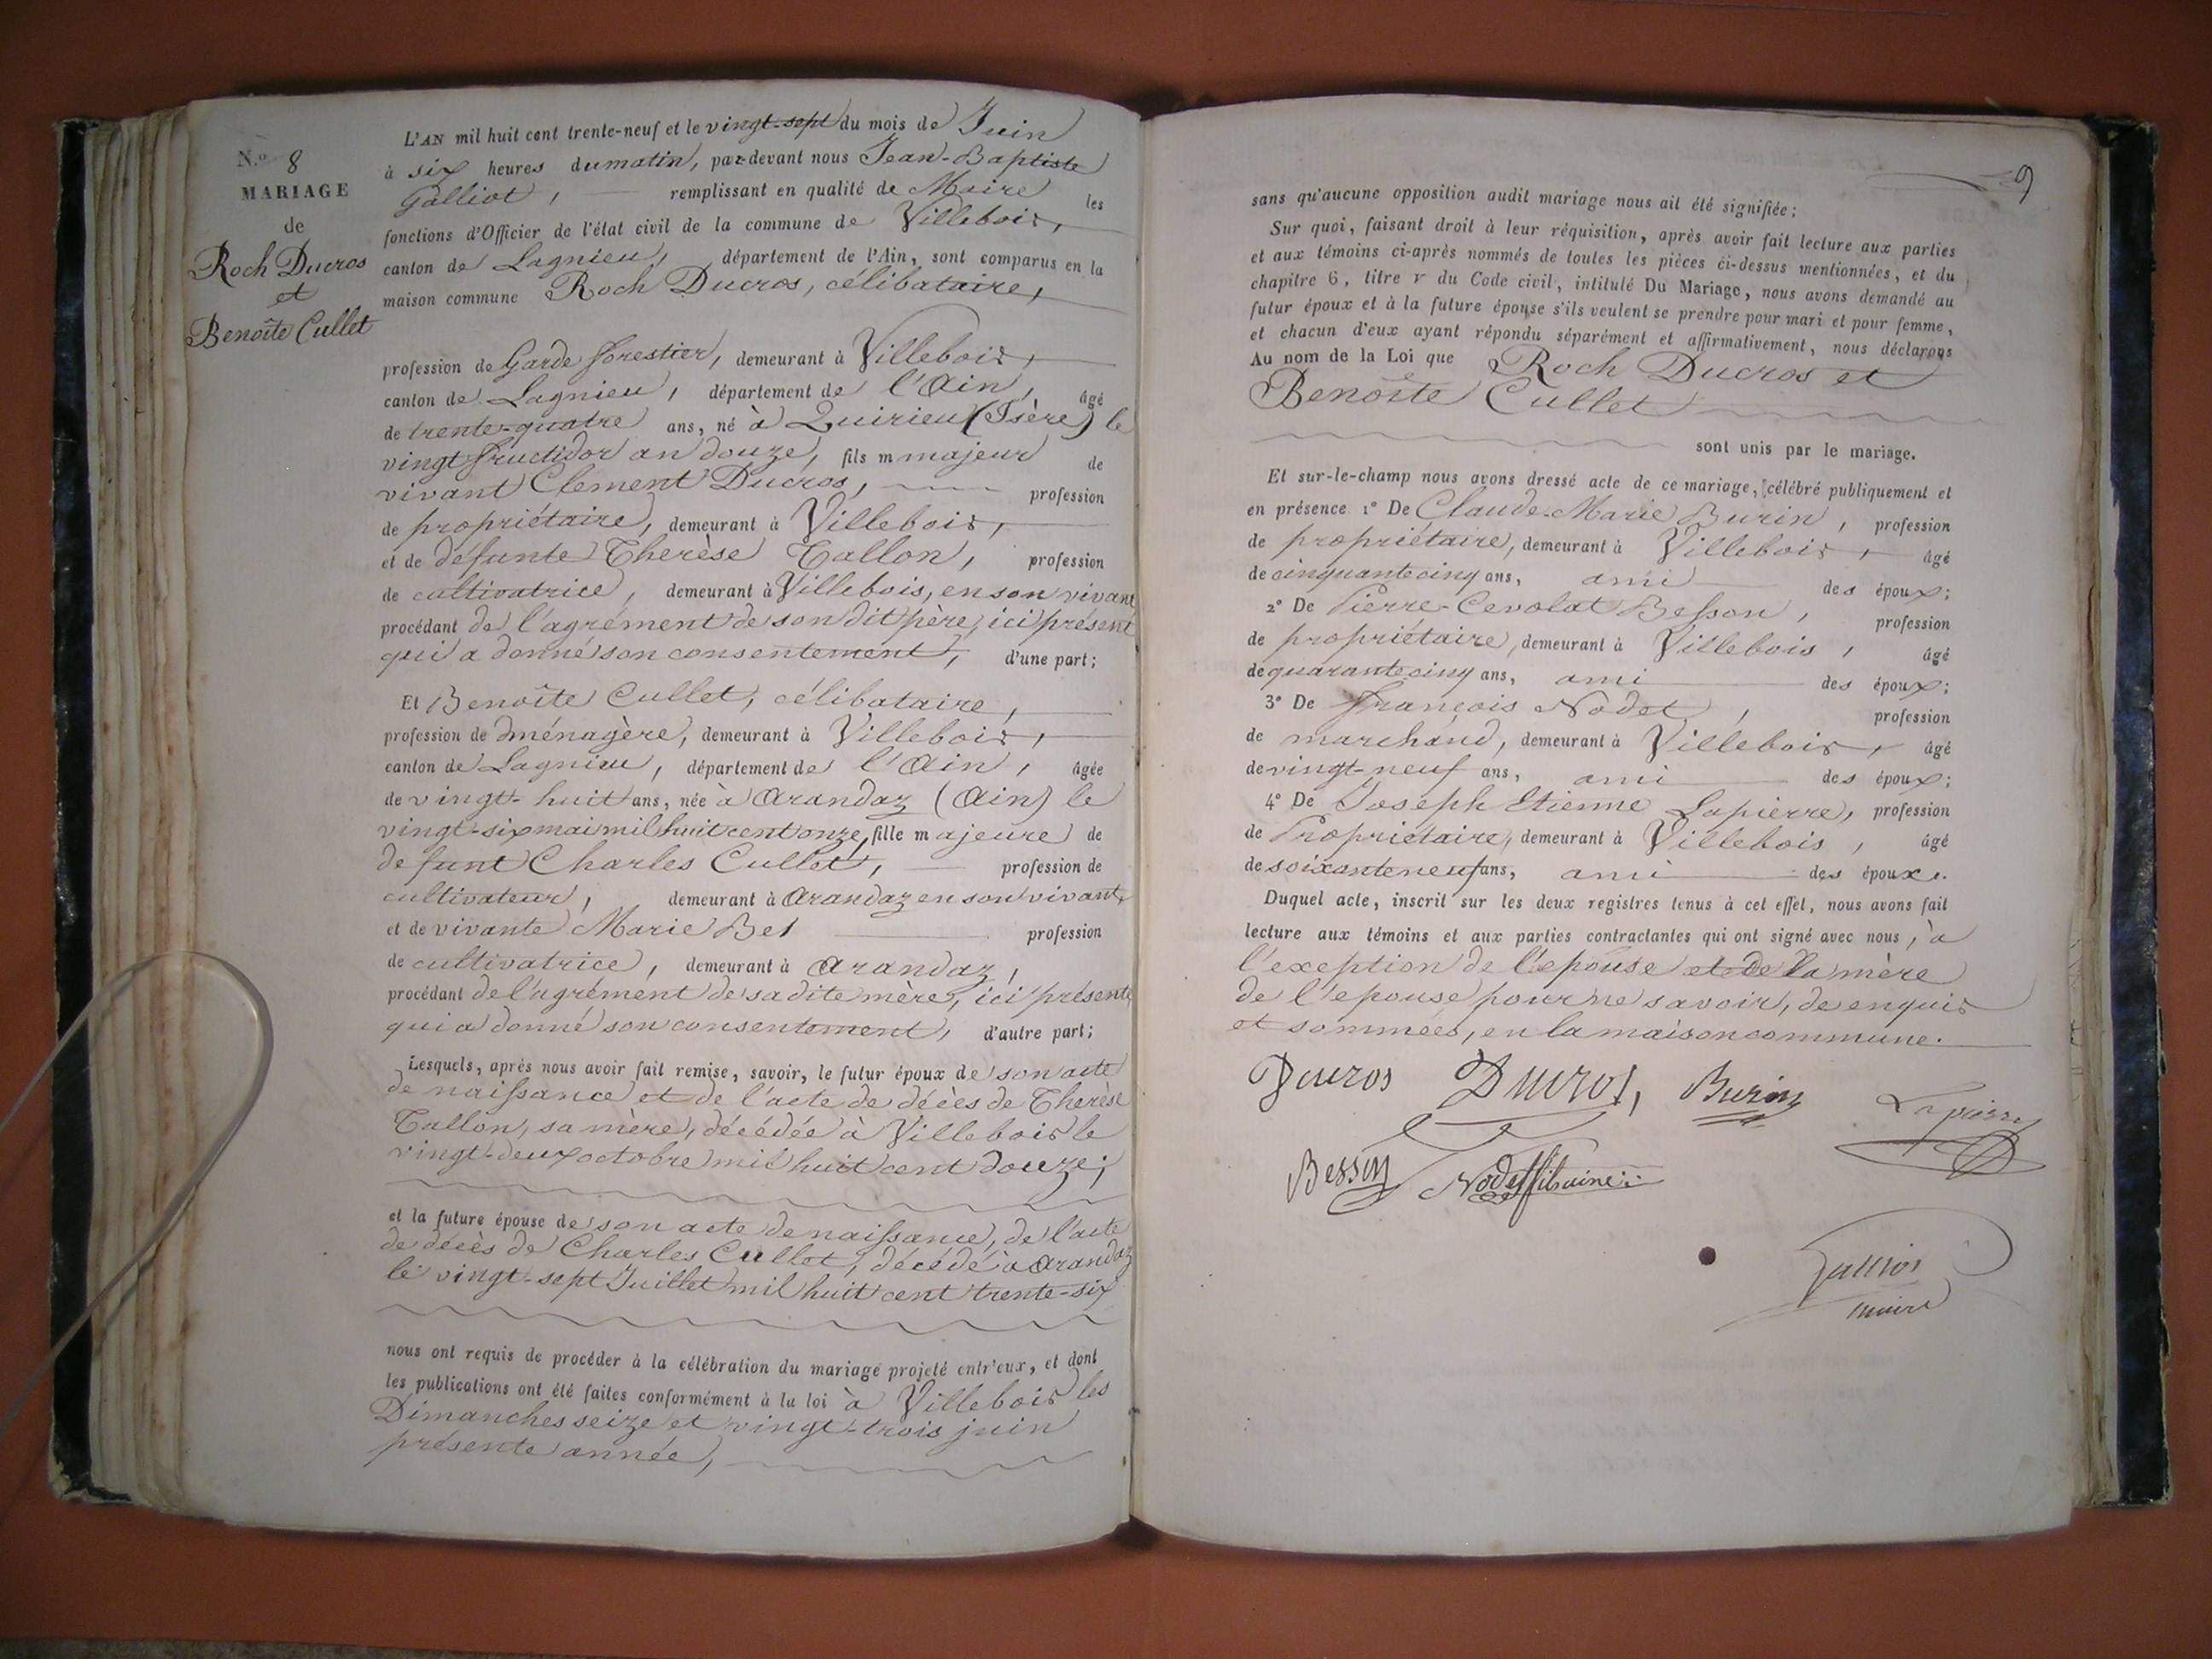 N.º 8
MARIAGE
de
Roch Ducros
et
Benoîte Cullet
L'AN mil huit cent trente-neuf et le vingt-sept du mois de Juin
à six heures du matin, par-devant nous Jean-Baptiste
Galliot, remplissant en qualité de Maire les
fonctions d'Officier de l'état civil de la commune de Villebois,
canton de Lagnieu, département de l'Ain, sont comparus en la
maison commune Roch Ducros, célibataire,
profession de Garde forestier, demeurant à Villebois,
canton de Lagnieu, département de l'Ain, âgé
de trente-quatre ans, né à Quirieu (Isère) le
vingt fructidor an douze, fils majeur de
vivant Clement Ducros, profession
de propriétaire, demeurant à Villebois,
et de défunte Therèse Tallon, profession
de cultivatrice, demeurant à Villebois, en son vivant
procédant de l'agrément de son dit père, ici présent
qui a donné son consentement, d'une part;
Et Benoîte Cullet, célibataire,
profession de ménagère, demeurant à Villebois,
canton de Lagnieu, département de l'Ain, âgée
de vingt-huit ans, née à Arandaz (Ain) le
vingt-six mai mil huit cent onze, fille majeure de
defunt Charles Cullet, profession de
cultivateur, demeurant à Arandaz en son vivant,
et de vivante Marie Bel profession
de cultivatrice, demeurant à Arandaz,
procédant de l'agrément de sa dite mère, ici présente
qui a donné son consentement, d'autre part;
Lesquels, après nous avoir fait remise, savoir, le futur époux de son acte
de naissance et de l'acte de décès de Therèse
Tallon, sa mère, décédée à Villebois le
vingt-deux octobre mil huit cent douze;
et la future épouse de son acte de naissance, de l'acte
de décès de Charles Cullet, décédé à Arandaz
le vingt-sept Juillet mil huit cent trente-six
nous ont requis de procéder à la célébration du mariage projeté entr'eux, et dont
les publications ont été faites conformément à la loi à Villebois les
Dimanches seize et vingt-trois juin
présente année,
9
sans qu'aucune opposition audit mariage nous ait été signifiée;
Sur quoi, faisant droit à leur réquisition, après avoir fait lecture aux parties
et aux témoins ci-après nommés de toutes les pièces ci-dessus mentionnées, et du
chapitre 6, titre V du Code civil, intitulé Du Mariage, nous avons demandé au
futur époux et à la future épouse s'ils veulent se prendre pour mari et pour femme,
et chacun d'eux ayant répondu séparément et affirmativement, nous déclarons
Au nom de la Loi que Roch Ducros et
Benoîte Cullet
sont unis par le mariage.
Et sur-le-champ nous avons dressé acte de ce mariage, célébré publiquement et
en présence 1º De Claude-Marie Burin, profession
de propriétaire, demeurant à Villebois, âgé
de cinquante cinq ans, ami des époux;
2º De Pierre-Cevolat Besson, profession
de propriétaire, demeurant à Villebois, âgé
de quarante cinq ans, ami des époux;
3º De François Nodet, profession
de marchand, demeurant à Villebois, âgé
de vingt-neuf ans, ami des époux;
4º De Joseph Etienne Lapierre, profession
de Propriétaire, demeurant à Villebois, âgé
de soixante neuf ans, ami des époux.
Duquel acte, inscrit sur les deux registres tenus à cet effet, nous avons fait
lecture aux témoins et aux parties contractantes qui ont signé avec nous, à
l'exeption de l'épouse et de la mère
de l'epouse pour ne savoir, de enquis
et sommées, en la maison commune.
Ducros Ducros, Burin Lapierre
Besson Nodet
Galliot
maire